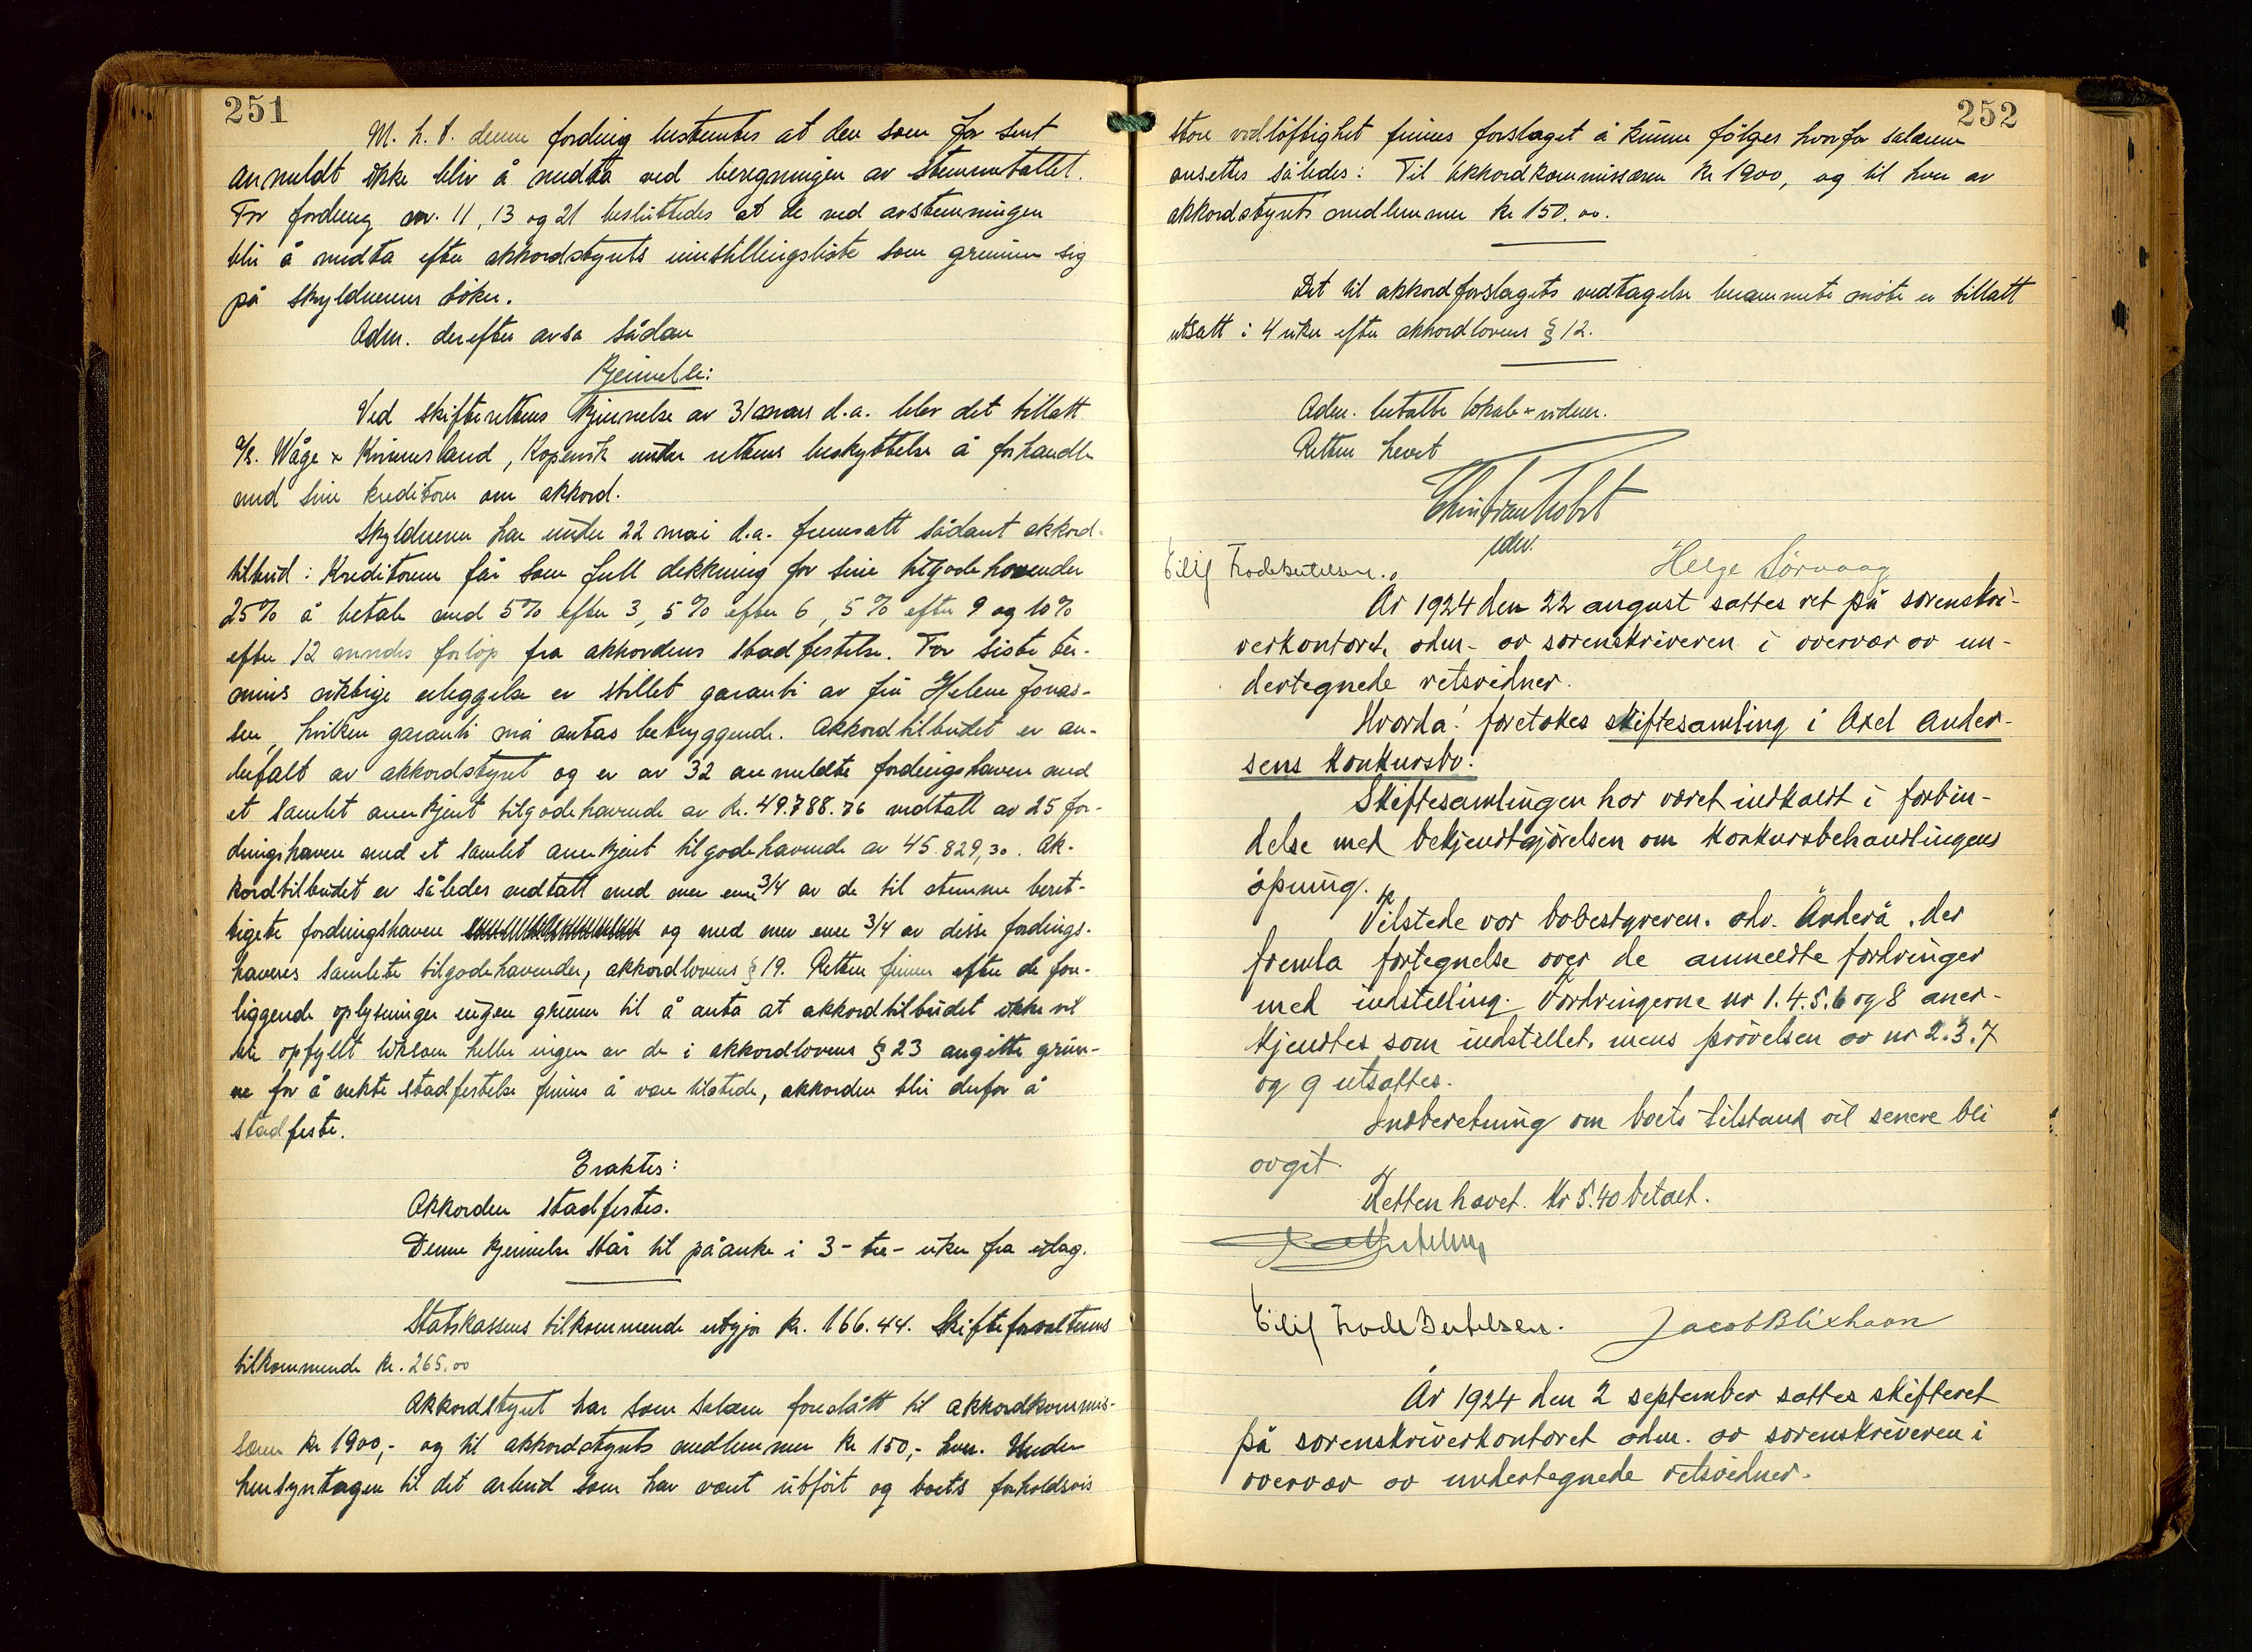 251
M. h. t. denne fordring bestemtes at den som for sent
anmeldt ikke blir å medta ved beregningen av stemmetallet.
For fordring nr. 11, 13 og 21 besluttedes at de ved avstemningen
blir å medta efter akkordstyrets innstillingsliste som grunner sig
på skyldnerens bøker.
Adm. derefter avsa sådan
Kjennelse:
Ved skifterettens kjennelse av 31 mars d.a. blev det tillatt
A/S. Wåge & Kvinnesland, Kopervik under rettens beskyttelse å forhandle
med sine kreditorer om akkord.
Skyldneren har under 22 mai d.a. fremsatt sådant akkord-
tilbud: Kreditorene får som full dekkning for sine tilgodehavender
25% å betale med 5% efter 3, 5% efter 6, 5% efter 9 og 10%
efter 12 mnds forløp fra akkordens stadfestelse. For siste ter-
mins riktige erleggelse er stillet garanti av frú Helene Jonas-
sen, hvilken garanti må antas betryggende. Akkordtilbudet er an-
befalt av akkordstyret og er av 32 anmeldte fordringshavere med
et samlet anerkjent tilgodehavende av kr. 49.788.76 vedtatt av 25 for-
dringshavere med et samlet anerkjent tilgodehavende av 45.829,30. Ak-
kordtilbudet er således vedtatt med mer enn 3/4 av de til stemme beret-
tigete fordringshavere og med mer enn 3/4 av disse fordrings-
haveres samlete tilgodehavender, akkordlovens § 19. Retten finner efter de fore-
liggende oplysninger ingen grunn til å anta at akkordtilbudet ikke vil
bli opfyllt likesom heller ingen av de i akkordlovens § 23 angitte grun-
ne for å nekte stadfestelse finnes å være tilstede, akkorden blir derfor å
stadfeste.
Eraktes:
Akkorden stadfestes.
Denne kjennelse står til påanke i 3 - tre - uker fra idag.
Statskassens tilkommende utgjør kr. 166.44. Skifteforvalterens
tilkommende kr. 265.00
Akkordstyret har som salær foreslått til akkordkommis-
særen kr 1900,- og til akkordstyrets medlemmer kr 150,- hver. Under
hensyntagen til det arbeid som har været utført og boets forholdsvis
252
store vidløftighet finnes forslaget å kunne følges hvorfor salærene
ansettes således: Til akkordkommissæren kr 1900, og til hver av
akkordstyrets medlemmer kr 150.00.
Det til akkordforslagets vedtagelse berammete møte er tillatt
utsatt i 4 uker efter akkordlovens § 12.
Adm. betalte lokale & vidner.
Retten hevet
Christian Kobst
Eilif Trode Bertelsen. Helge Sørvaag
År 1924 den 22 august sattes ret på sorenskri-
verkontoret, adm. av sorenskriveren i overvær av un-
dertegnede retsvidner.
Hvorda! foretokes skiftesamling i Axel Ander-
sens konkursbo.
Skiftesamlingen har været indkaldt i forbin-
delse med bekjendtgjørelsen om konkursbehandlingens
åpning.
Tilstede var bobestyreren, adv. Anderå, der
fremla fortegnelse over de anmeldte fordringer
med indstilling. Fordringerne nr 1.4.5.6 og 8 aner-
kjendtes som indstillet, mens prøvelsen av nr 2.3.7
og 9 utsattes.
Indberetning om boets tilstand vil senere bli
avgit.
Retten hævet. Kr 5.40 betalt.
Eilif Trode Bertelsen. Jacob Blixhavn
År 1924 den 2 september sattes skifteret
på sorenskriverkontoret adm. av sorenskriveren i
overvær av undertegnede retsvidner.